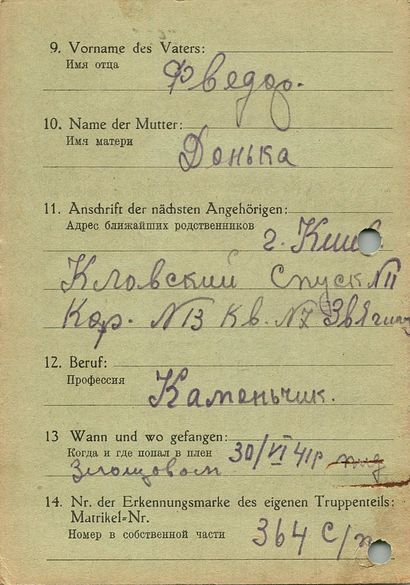 9. Vorname des Vaters:
Имя отца
Фведор.
10. Name der Mutter:
Имя матери
Донька
11. Anschrift der nächsten Angehörigen:
Адрес ближайших родственников
г. Киев
Кловский Спуск №11
Кор. №13 Кв. №7
12. Beruf:
Профессия
Каменьчик.
13 Wann und wo gefangen:
Когда и где попал в плен 30/VI 41г
14. Nr. der Erkennungsmarke des eigenen Truppenteils:
Matrikel-Nr.
Номер в собственной части
364 С/п